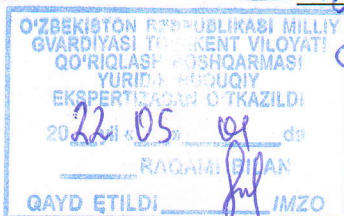 O'ZBEKISTON RESPUBLIKASI MILLIY
GVARDIYASI TOSHKENT VILOYATI
QO'RIQLASH BOSHQARMASI
YURIDIK HUQUQIY
EKSPERTIZADAN O'TKAZILDI
2022 yil «05» 01 da
RAQAMI BILAN
QAYD ETILDI IMZO